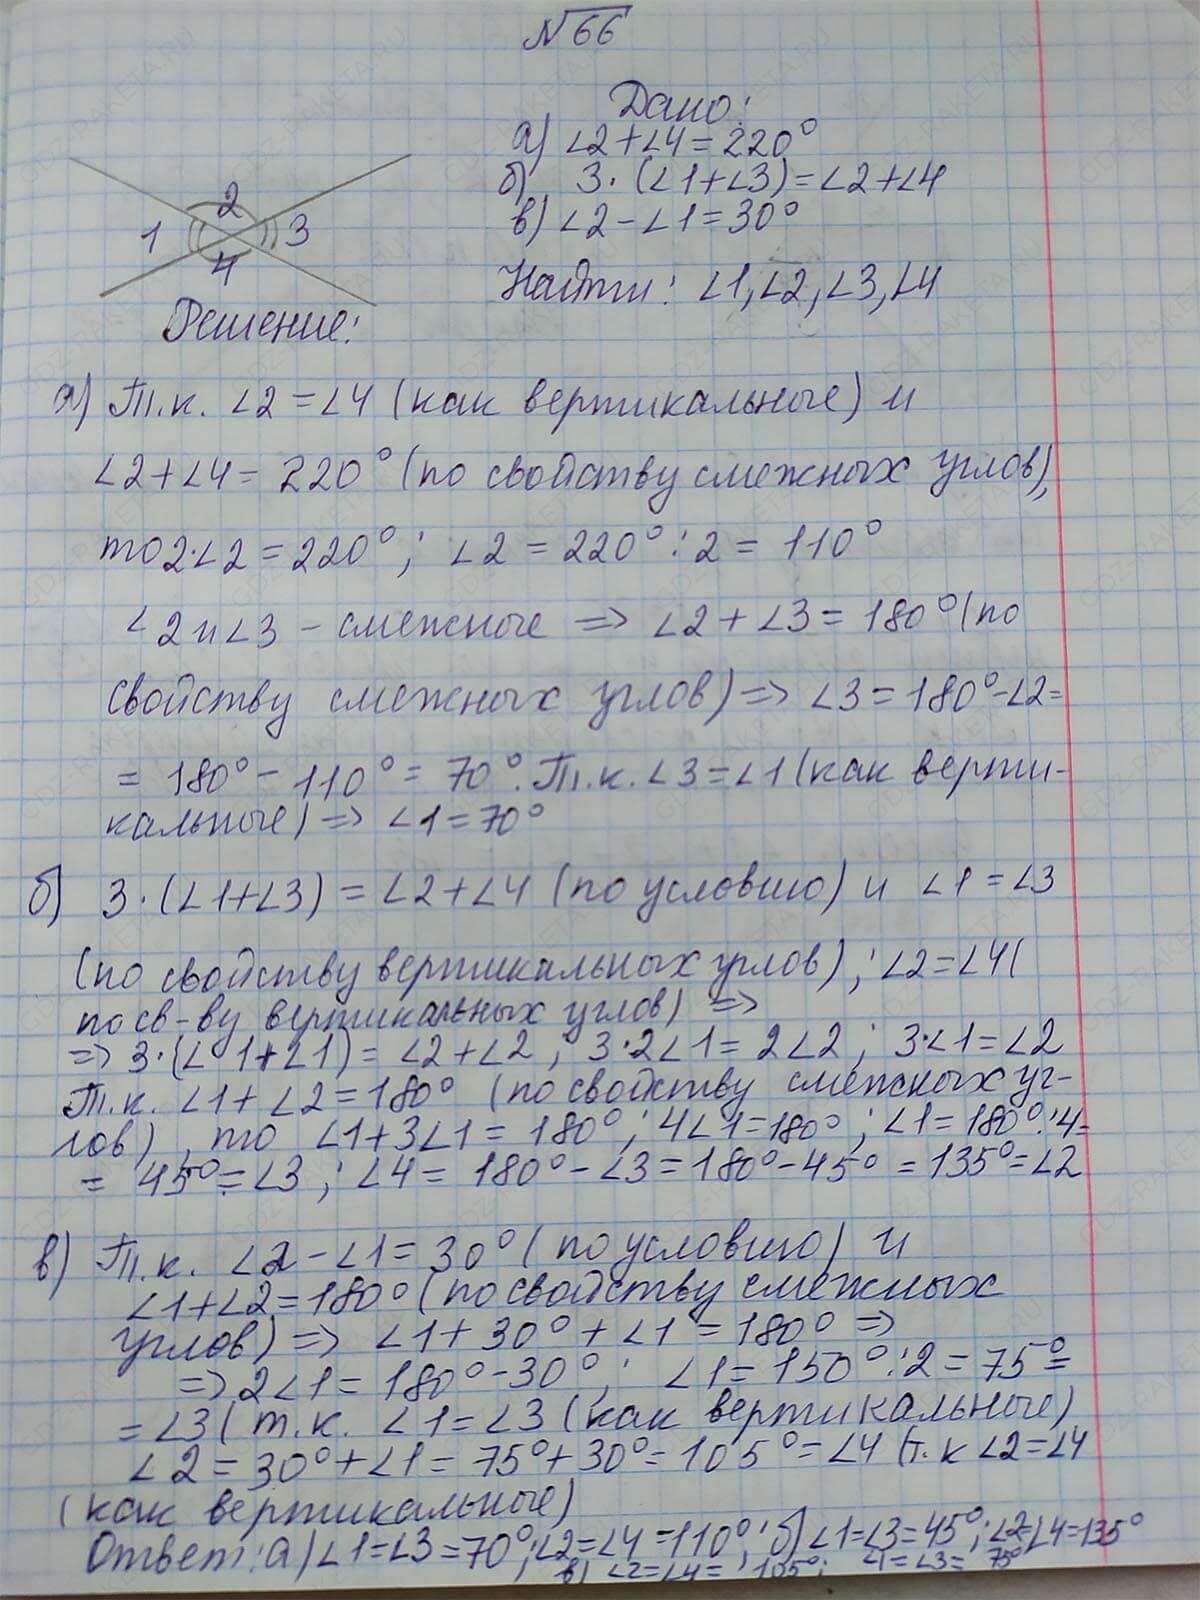 №66
Дано:
а) ∠2+∠4=220°
б) 3·(∠1+∠3)=∠2+∠4
в) ∠2-∠1=30°
Найти: ∠1,∠2,∠3,∠4
2
1 3
4
Решение:
а) Т.к. ∠2=∠4 (как вертикальные) и
∠2+∠4= 220° (по свойству смежных углов),
то 2·∠2=220°; ∠2=220°:2= 110°
∠2 и ∠3 - смежные => ∠2+∠3=180° (по
свойству смежных углов) => ∠3=180°-∠2=
= 180°-110°=70°. Т.к. ∠3=∠1 (как верти-
кальные) => ∠1=70°
б) 3·(∠1+∠3)=∠2+∠4 (по условию) и ∠1=∠3
(по свойству вертикальных углов); ∠2=∠4(
по св-ву вертикальных углов) =>
=> 3·(∠1+∠1)= ∠2+∠2; 3·2∠1=2∠2; 3·∠1=∠2
Т.к. ∠1+∠2=180° (по свойству смежных уг-
лов), то ∠1+3∠1=180°; 4∠1=180°; ∠1=180°:4=
= 45°=∠3; ∠4=180°-∠3=180°-45°=135°=∠2
в) Т.к. ∠2-∠1=30° (по условию) и
∠1+∠2=180° (по свойству смежных
углов) => ∠1+30°+∠1=180° =>
=> 2∠1=180°-30°; ∠1=150°:2=75°=
=∠3 (т.к. ∠1=∠3 (как вертикальные)
∠2=30°+∠1=75°+30°=105°=∠4 (т.к ∠2=∠4
(как вертикальные)
Ответ: а) ∠1=∠3=70°; ∠2=∠4=110°; б) ∠1=∠3=45°; ∠2=∠4=135°
в) ∠2=∠4= 105°; ∠1=∠3= 75°